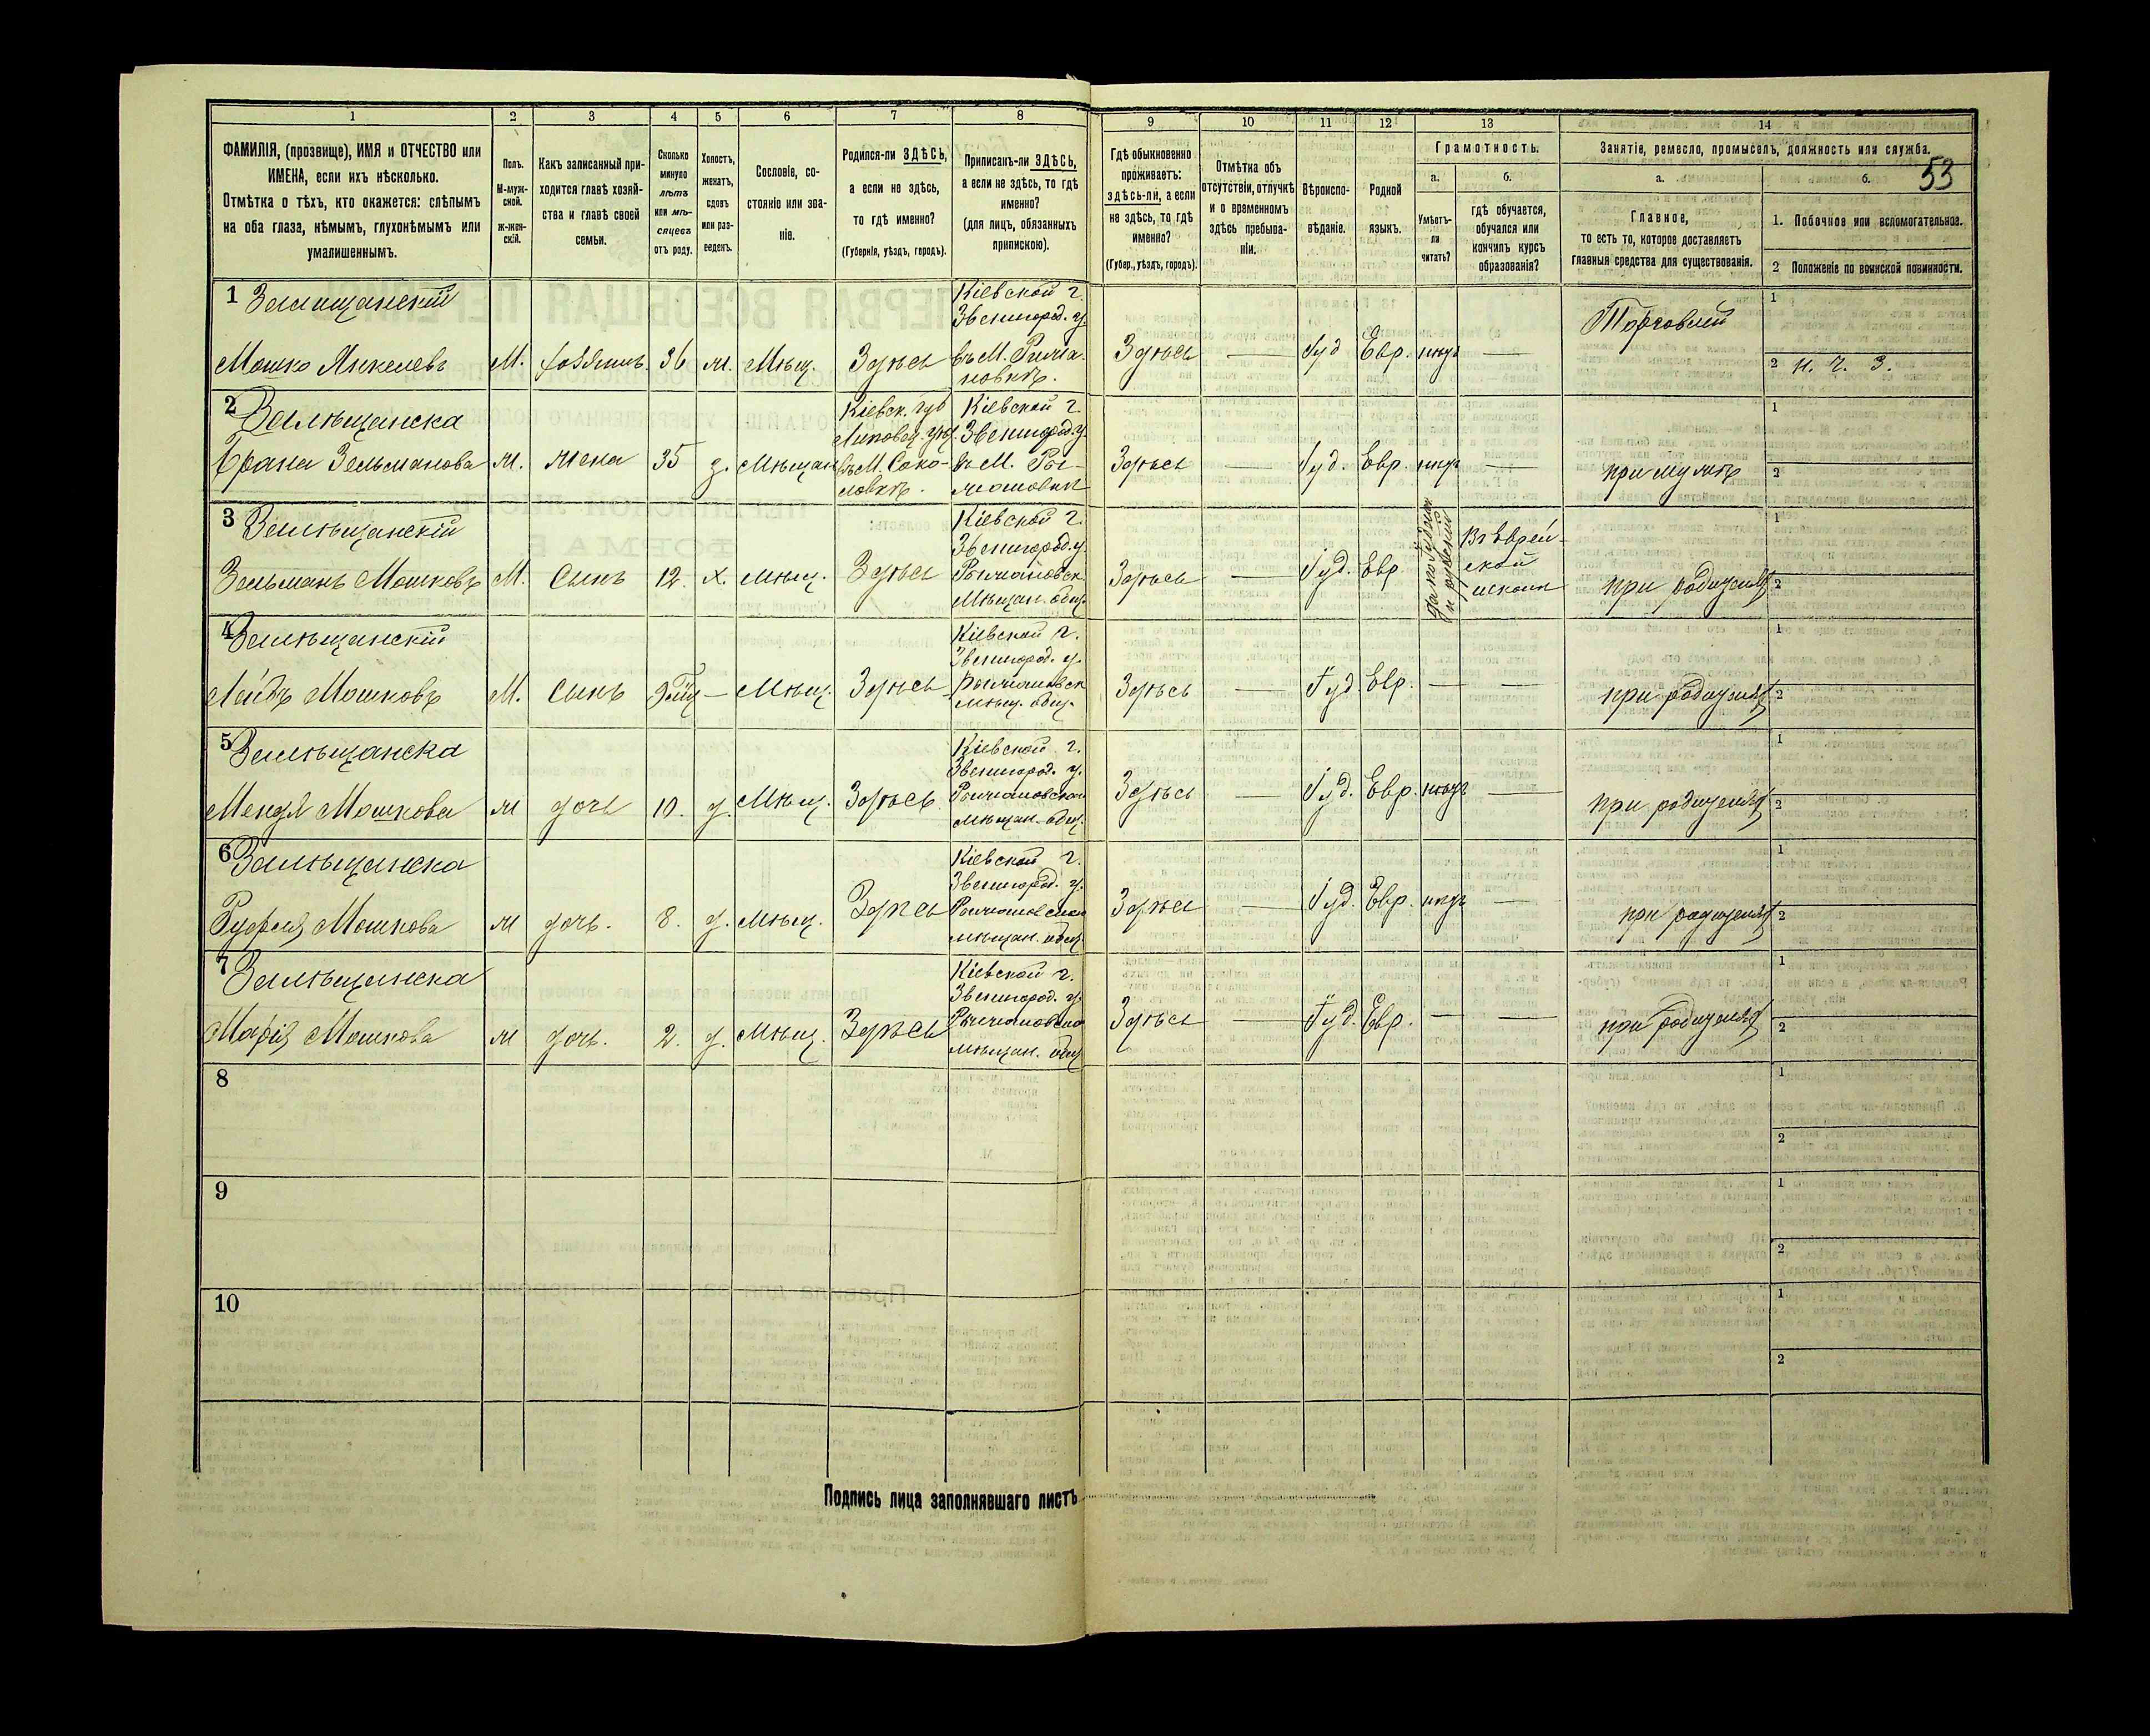 1 2 3 4 5 6 7 8 9 10 11 12 13 14
ФАМИЛІЯ, (прозвище), ИМЯ и ОТЧЕСТВО или
ИМЕНА, если ихъ нѣсколько.
Отмѣтка о тѣхъ, кто окажется: слѣпымъ
на оба глаза, нѣмымъ, глухонѣмымъ или
умалишеннымъ.
Полъ.
М-муж-
ской.
ж-жен-
скій.
Какъ записанный при-
ходится главѣ хозяй-
ства и главѣ своей
семьи.
Сколько
минуло
лѣтъ
или мѣ-
сяцевъ
отъ роду.
Холостъ,
женатъ,
вдовъ
или раз-
веденъ.
Сословіе, со-
стояніе или зва-
ніе.
Родился-ли ЗДѢСЬ,
а если не здѣсь,
то гдѣ именно?
(Губернія, уѣздъ, городъ).
Приписанъ-ли ЗДѢСЬ,
а если не здѣсь, то гдѣ
именно?
(для лицъ, обязанныхъ
припискою).
Гдѣ обыкновенно
проживаетъ:
здѣсь-ли, а если
не здѣсь, то гдѣ
именно?
(Губер., уѣздъ, городъ).
Отмѣтка объ
отсутствіи, отлучкѣ
и о временномъ
здѣсь пребыва-
ніи.
Вѣроиспо-
вѣданіе.
Родной
языкъ.
Грамотность.
а.
Умѣетъ-
ли
читать?
б.
гдѣ обучается,
обучался или
кончилъ курсъ
образованія?
Занятіе, ремесло, промыселъ, должность или служба.
53
а.
Главное,
то есть то, которое доставляетъ
главныя средства для существованія.
б.
1. Побочное или вспомогательное.
2 Положеніе по воинской повинности.
1
Кіевской г.
Звенигород. у.
Торговлей
1
Мошко Янкелевъ М. хозяинъ 36 ж. Мѣщ. Здѣсь
Здѣсь — Іуд Евр. нѣтъ —
2 н. ч. з.
2 Залѣщанска
Кіевск. губ
Кіевской г.
Звенигород. у.
1
Зельманова ж. жена 35 з. Мѣщан въ М. Соко-
ловкѣ.
Здѣсь — Іуд. Евр. нѣтъ — при мужѣ
2
3 Залѣщанскій
Кіевской г.
Звенигород. у.
Въ Еврей-
ской
школѣ
1
Зельманъ Мошковъ М. Сынъ 12. х. мѣщ. Здѣсь
Мѣщан. общ.
Здѣсь — Іуд. Евр. при родителяхъ
2
4 Залѣщанскій
Кіевской г.
Звенигород. у.
1
Мошковъ М. Сынъ — Мѣщ. Здѣсь
мѣщ. общ.
Здѣсь — Іуд. Евр. — — при родителяхъ
2
5 Залѣщанска
Кіевской г.
Звенигород. у.
1
Мендя Мошкова ж дочь 10. д. Мѣщ. Здѣсь
мѣщан. общ.
Здѣсь — Іуд. Евр. нѣтъ — при родителяхъ
2
6 Залѣщанска
Кіевской г.
Звенигород. у.
1
Мошкова ж дочь. 8. д. мѣщ. Здѣсь
мѣщан. общ.
Здѣсь — Іуд. Евр. нѣтъ — при родителяхъ
2
7 Залѣщанска
Кіевской г.
Звенигород. у.
1
Марія Мошкова ж дочь. 2. д. Мѣщ. Здѣсь
мѣщан. общ
Здѣсь — Іуд. Евр. — — при родителяхъ
2
8
1
2
9
1
2
10
1
2
Подпись лица заполнявшаго листъ